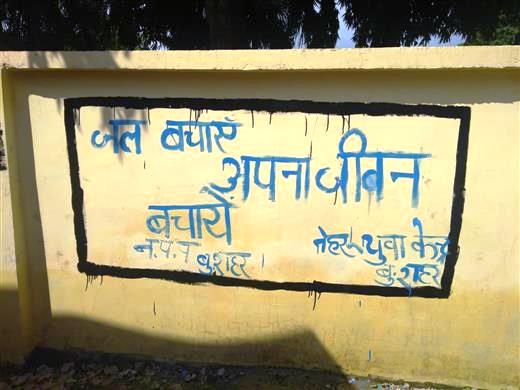 जल बचाएँ
अपना जीवन
बचायें
न.प.प बु.शहर
नेहरू युवा केन्द्र
बु.शहर